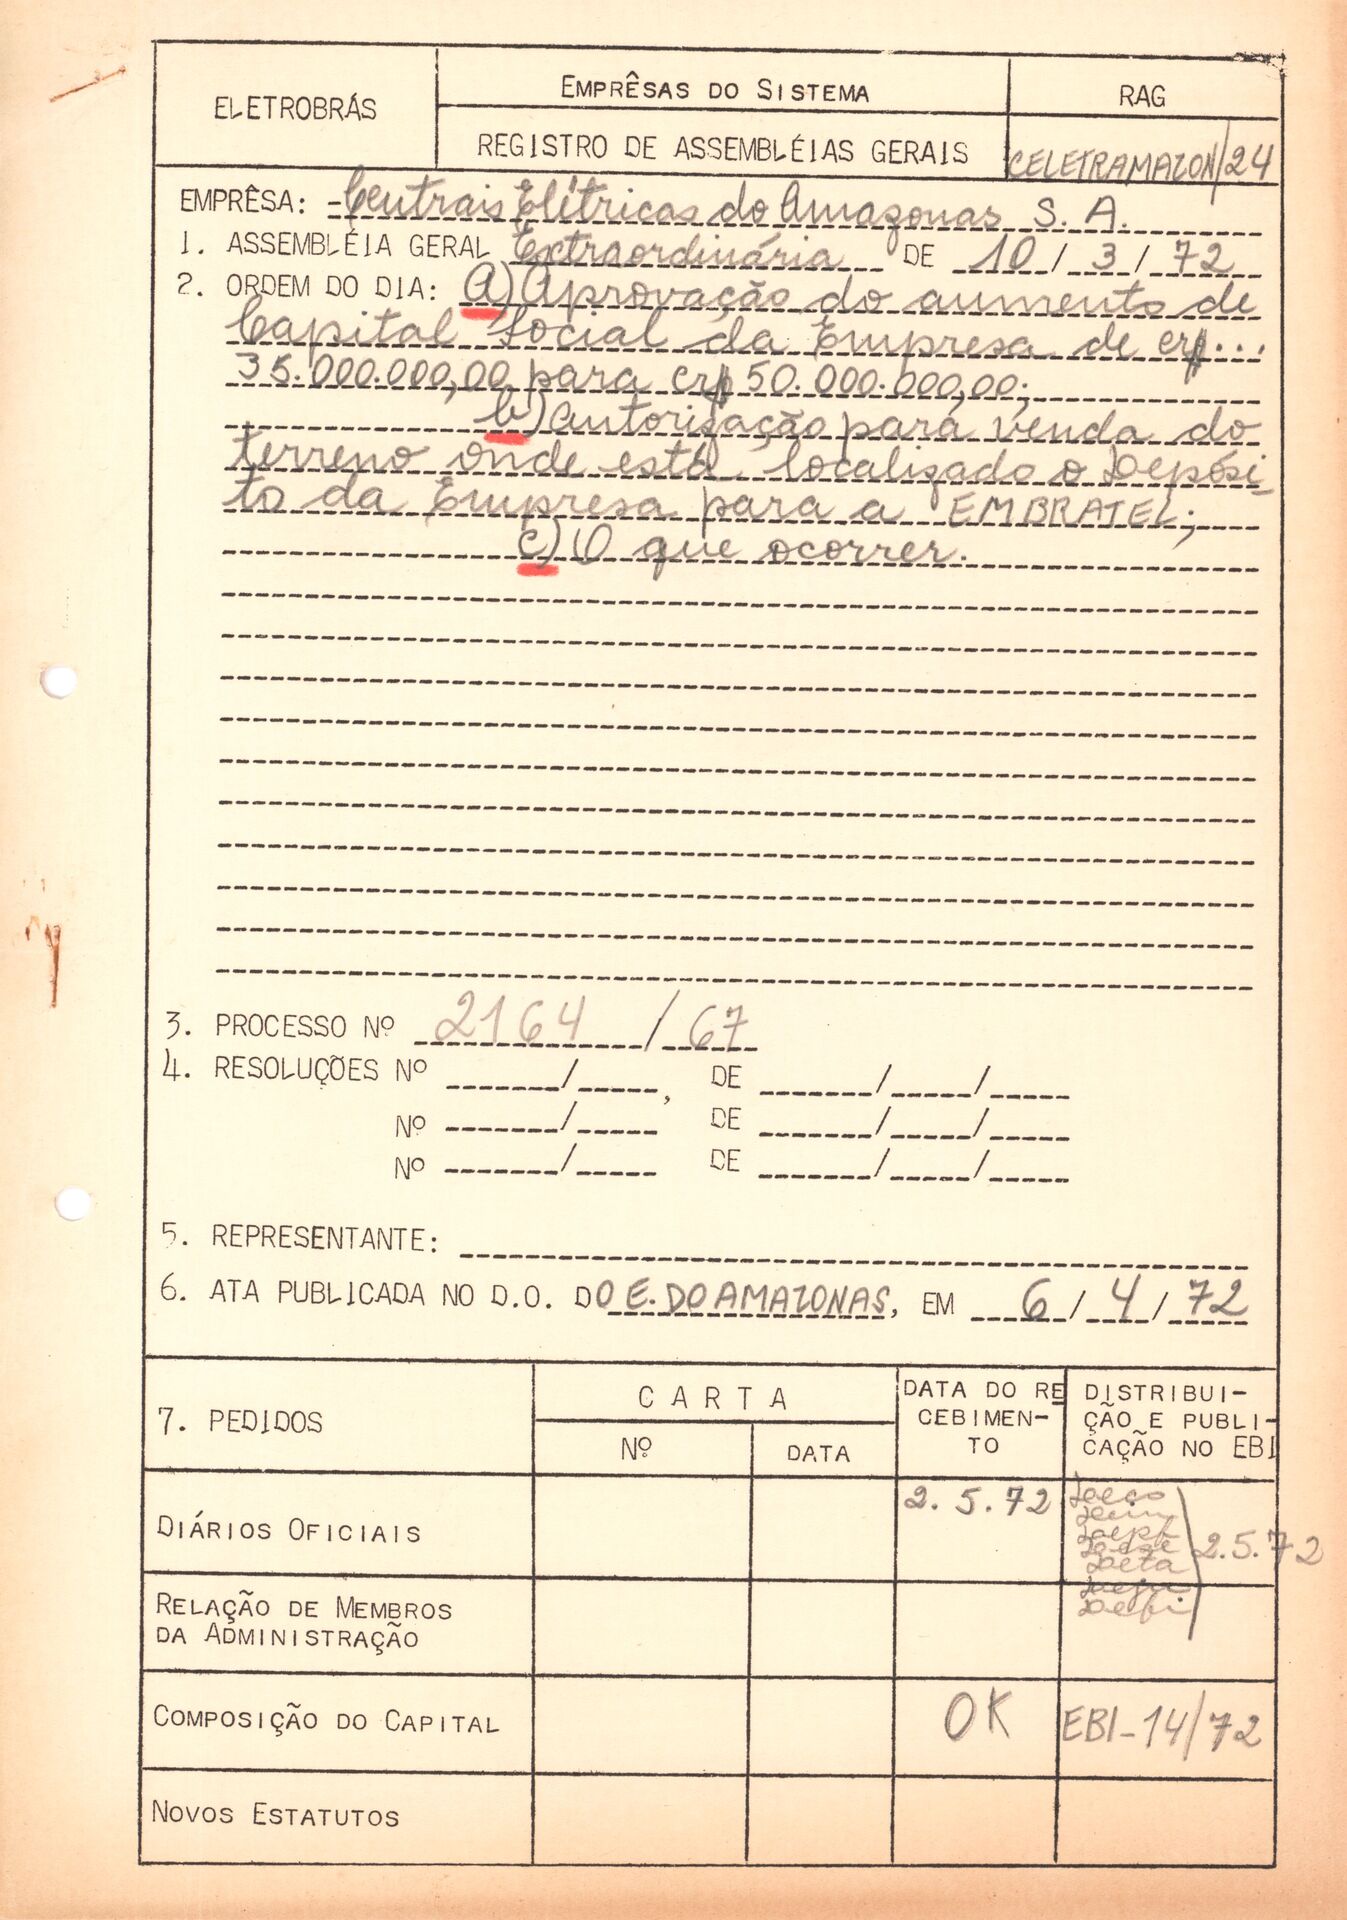 ELETROBRÁS
EMPRÊSAS DO SISTEMA
REGISTRO DE ASSEMBLÉIAS GERAIS
RAG
CELETRAMAZON/24
EMPRÊSA: Centrais Elétricas do Amazonas S.A.
1. ASSEMBLÉIA GERAL Extraordinária DE 10/3/72
2. ORDEM DO DIA: a) Aprovação do aumento de
Capital Social da Empresa de cr$...
35.000.000,00 para cr$ 50.000.000,00;
b) Autorização para venda do
terreno onde está localizado o Depósi-
to da Empresa para a EMBRATEL;
c) O que ocorrer.
3. PROCESSO Nº 2164/67
4. RESOLUÇÕES Nº ____/____, DE ____/____/____
Nº ____/____ DE ____/____/____
Nº ____/____ DE ____/____/____
5. REPRESENTANTE:
6. ATA PUBLICADA NO D.O. DO E. DO AMAZONAS, EM 6/4/72
7. PEDIDOS
CARTA
Nº
DATA
DATA DO RE
CEBIMEN-
TO
DISTRIBUI-
ÇÃO E PUBLI-
CAÇÃO NO EBI
DIÁRIOS OFICIAIS
2.5.72
Deta
2.5.72
RELAÇÃO DE MEMBROS
DA ADMINISTRAÇÃO
Defi
COMPOSIÇÃO DO CAPITAL
OK
EBI-14/72
NOVOS ESTATUTOS